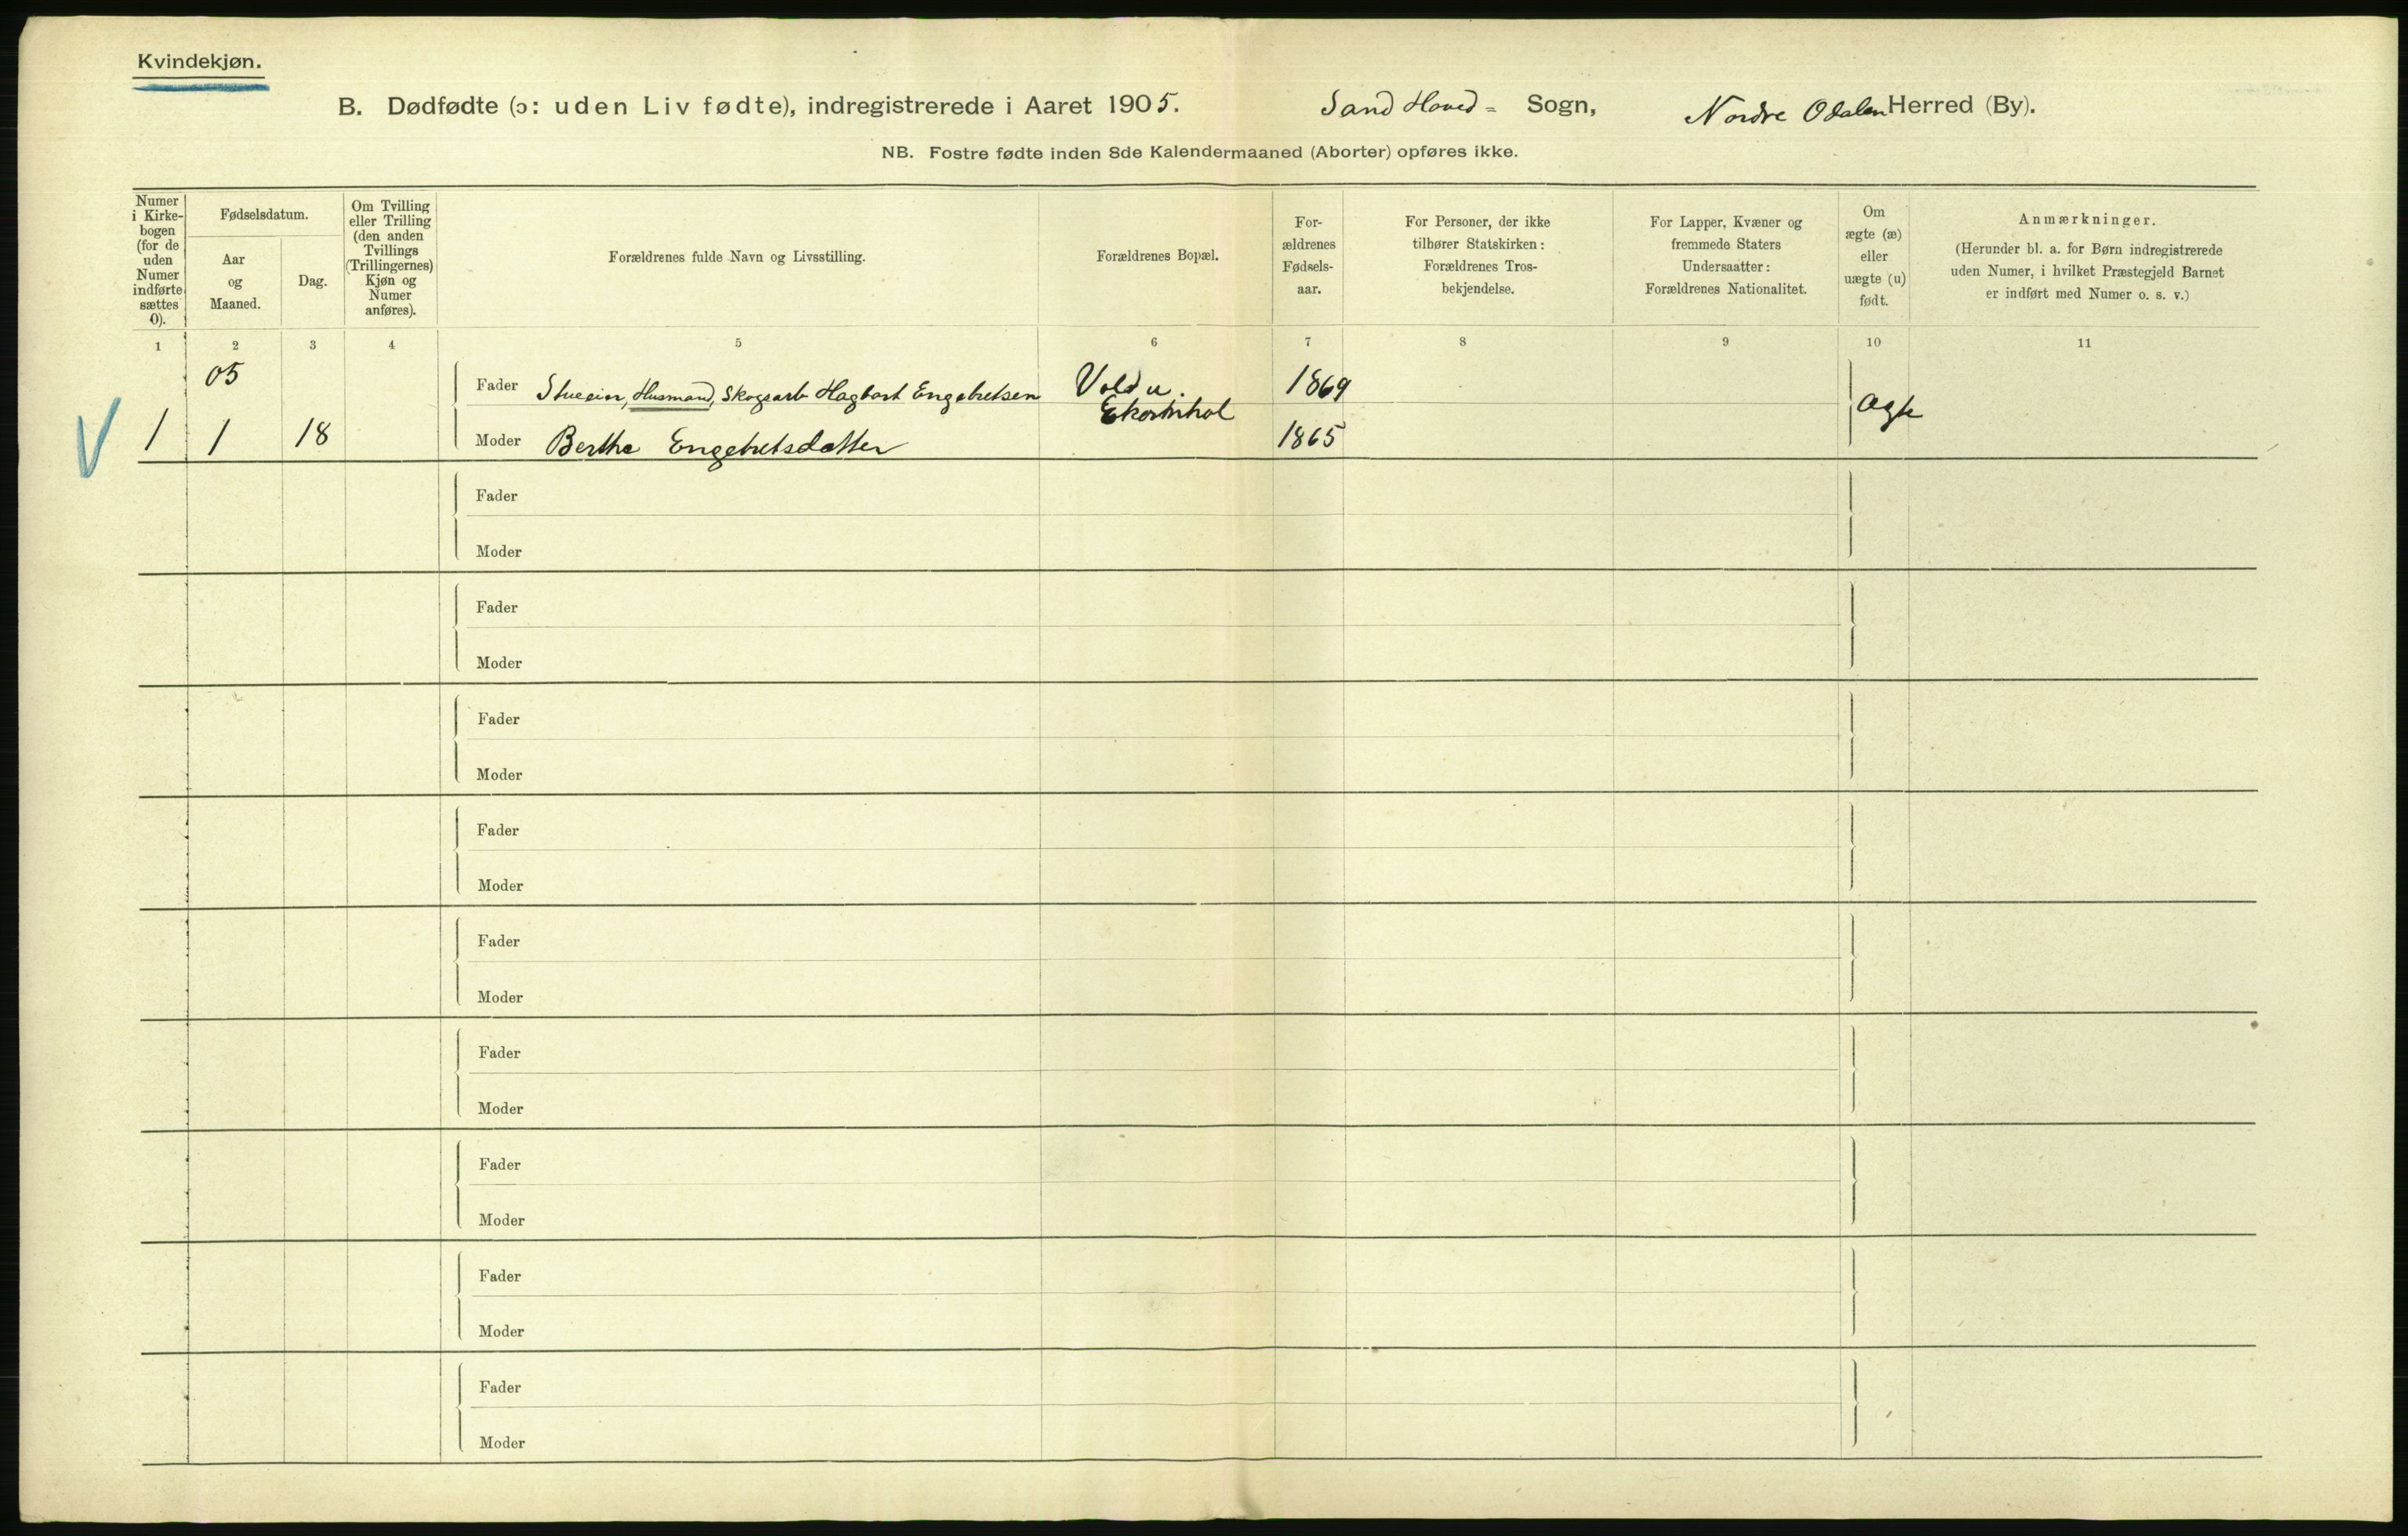 Kvindekjøn.
B. Dødfødte (ɔ: uden Liv fødte), indregistrerede i Aaret 1905. Sand Hoved- Sogn, Nordre Odalen Herred (By).
NB. Fostre fødte inden 8de Kalendermaaned (Aborter) opføres ikke.
Numer i Kirkebogen (for de uden Numer indførte sættes 0).
Fødselsdatum.
Aar og Maaned.
Dag.
Om Tvilling eller Trilling (den anden Tvillings (Trillingernes) Kjøn og Numer anføres).
Forældrenes fulde Navn og Livsstilling.
Forældrenes Bopæl.
For-ældrenes Fødsels-aar.
For Personer, der ikke tilhører Statskirken: Forældrenes Tros-bekjendelse.
For Lapper, Kvæner og fremmede Staters Undersaatter: Forældrenes Nationalitet.
Om ægte (æ) eller uægte (u) født.
Anmærkninger.
(Herunder bl. a. for Børn indregistrerede uden Numer, i hvilket Præstegjeld Barnet er indført med Numer o. s. v.)
1 2 3 4 5 6 7 8 9 10 11
05 Fader Stueeier, Husmand, Skogsarb Hagbart Engebretsen Vold u. 1869
Ekornhol ægte
1 1 18 Moder Berthe Engebretsdatter 1865
Fader
Moder
Fader
Moder
Fader
Moder
Fader
Moder
Fader
Moder
Fader
Moder
Fader
Moder
Fader
Moder
Fader
Moder